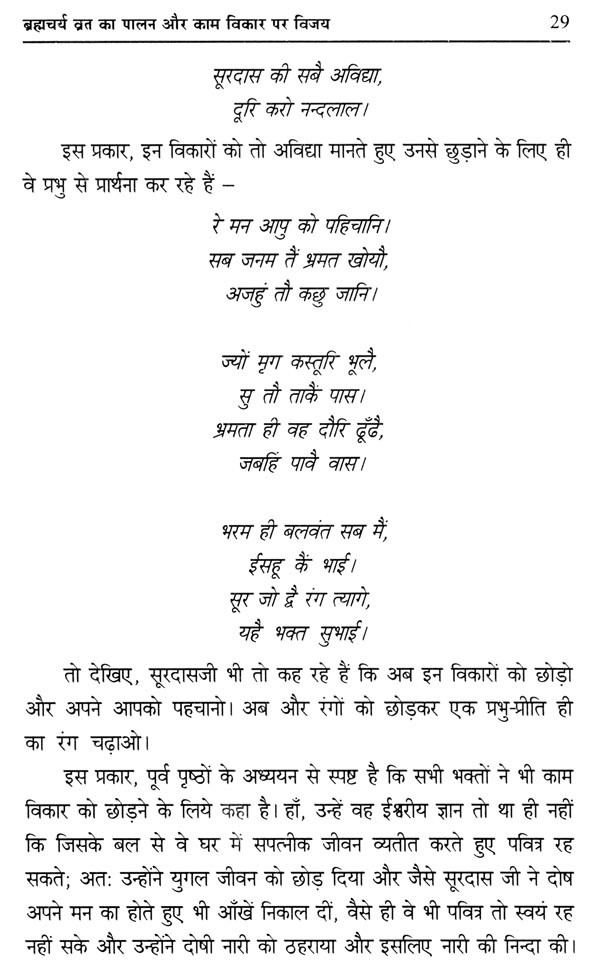 ब्रह्मचर्य व्रत का पालन और काम विकार पर विजय 29
सूरदास की सबै अविद्या,
दूरि करो नन्दलाल।
इस प्रकार, इन विकारों को तो अविद्या मानते हुए उनसे छुड़ाने के लिए ही
वे प्रभु से प्रार्थना कर रहे हैं –
रे मन आपु को पहिचानि।
सब जनम तैं भ्रमत खोयौ,
अजहुं तौ कछु जानि।
ज्यों मृग कस्तूरि भूलै,
सु तौ ताकैं पास।
भ्रमता ही वह दौरि ढूँढै,
जबहिं पावै वास।
भरम ही बलवंत सब मैं,
ईसहू कैं भाई।
सूर जो द्वै रंग त्यागे,
यहै भक्त सुभाई।
तो देखिए, सूरदासजी भी तो कह रहे हैं कि अब इन विकारों को छोड़ो
और अपने आपको पहचानो। अब और रंगों को छोड़कर एक प्रभु-प्रीति ही
का रंग चढ़ाओ।
इस प्रकार, पूर्व पृष्ठों के अध्ययन से स्पष्ट है कि सभी भक्तों ने भी काम
विकार को छोड़ने के लिये कहा है। हाँ, उन्हें वह ईश्वरीय ज्ञान तो था ही नहीं
कि जिसके बल से वे घर में सपत्नीक जीवन व्यतीत करते हुए पवित्र रह
सकते; अत: उन्होंने युगल जीवन को छोड़ दिया और जैसे सूरदास जी ने दोष
अपने मन का होते हुए भी आँखें निकाल दीं, वैसे ही वे भी पवित्र तो स्वयं रह
नहीं सके और उन्होंने दोषी नारी को ठहराया और इसलिए नारी की निन्दा की।